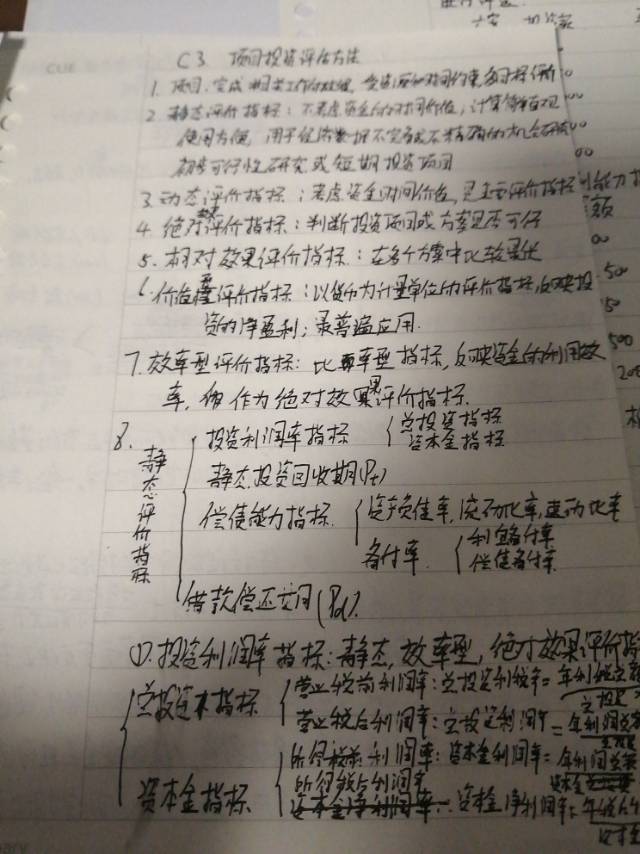 C3 项目投资评估方法
1. 项目:完成相关工作的过程,受资源和时间约束,多目标评价
2. 静态评价指标:不考虑资金的时间价值,计算简单直观
使用方便,用于经济数据不完备或不精确的机会研究
初步可行性研究或短期投资项目
3. 动态评价指标:考虑资金时间价值,是主要评价指标
4. 绝对效果评价指标:判断投资项目或方案是否可行
5. 相对效果评价指标:在多个方案中比较最优
6. 价值型评价指标:以货币为计量单位的评价指标,反映投
资的净盈利;最普遍应用.
7. 效率型评价指标:比率型指标,反映资金的利用效
率,作为绝对效果评价指标.
8. 静态评价指标
投资利润率指标 总投资指标
资本金指标
静态投资回收期(Pt)
偿债能力指标 资产负债率,流动比率,速动比率
备付率 利息备付率
偿债备付率
借款偿还期(Pd).
①.投资利润率指标:静态,效率型,绝对效果评价指
总投资本指标 营业税前利润率:总投资利税率=年利税总额
总投资
营业税后利润率:总投资利润率=年利润总
资本金指标 所得税前利润率:资本金利润率=年利润总
资本金
所得税后利润率
资本金净利润率=年税后
500
50
500
200